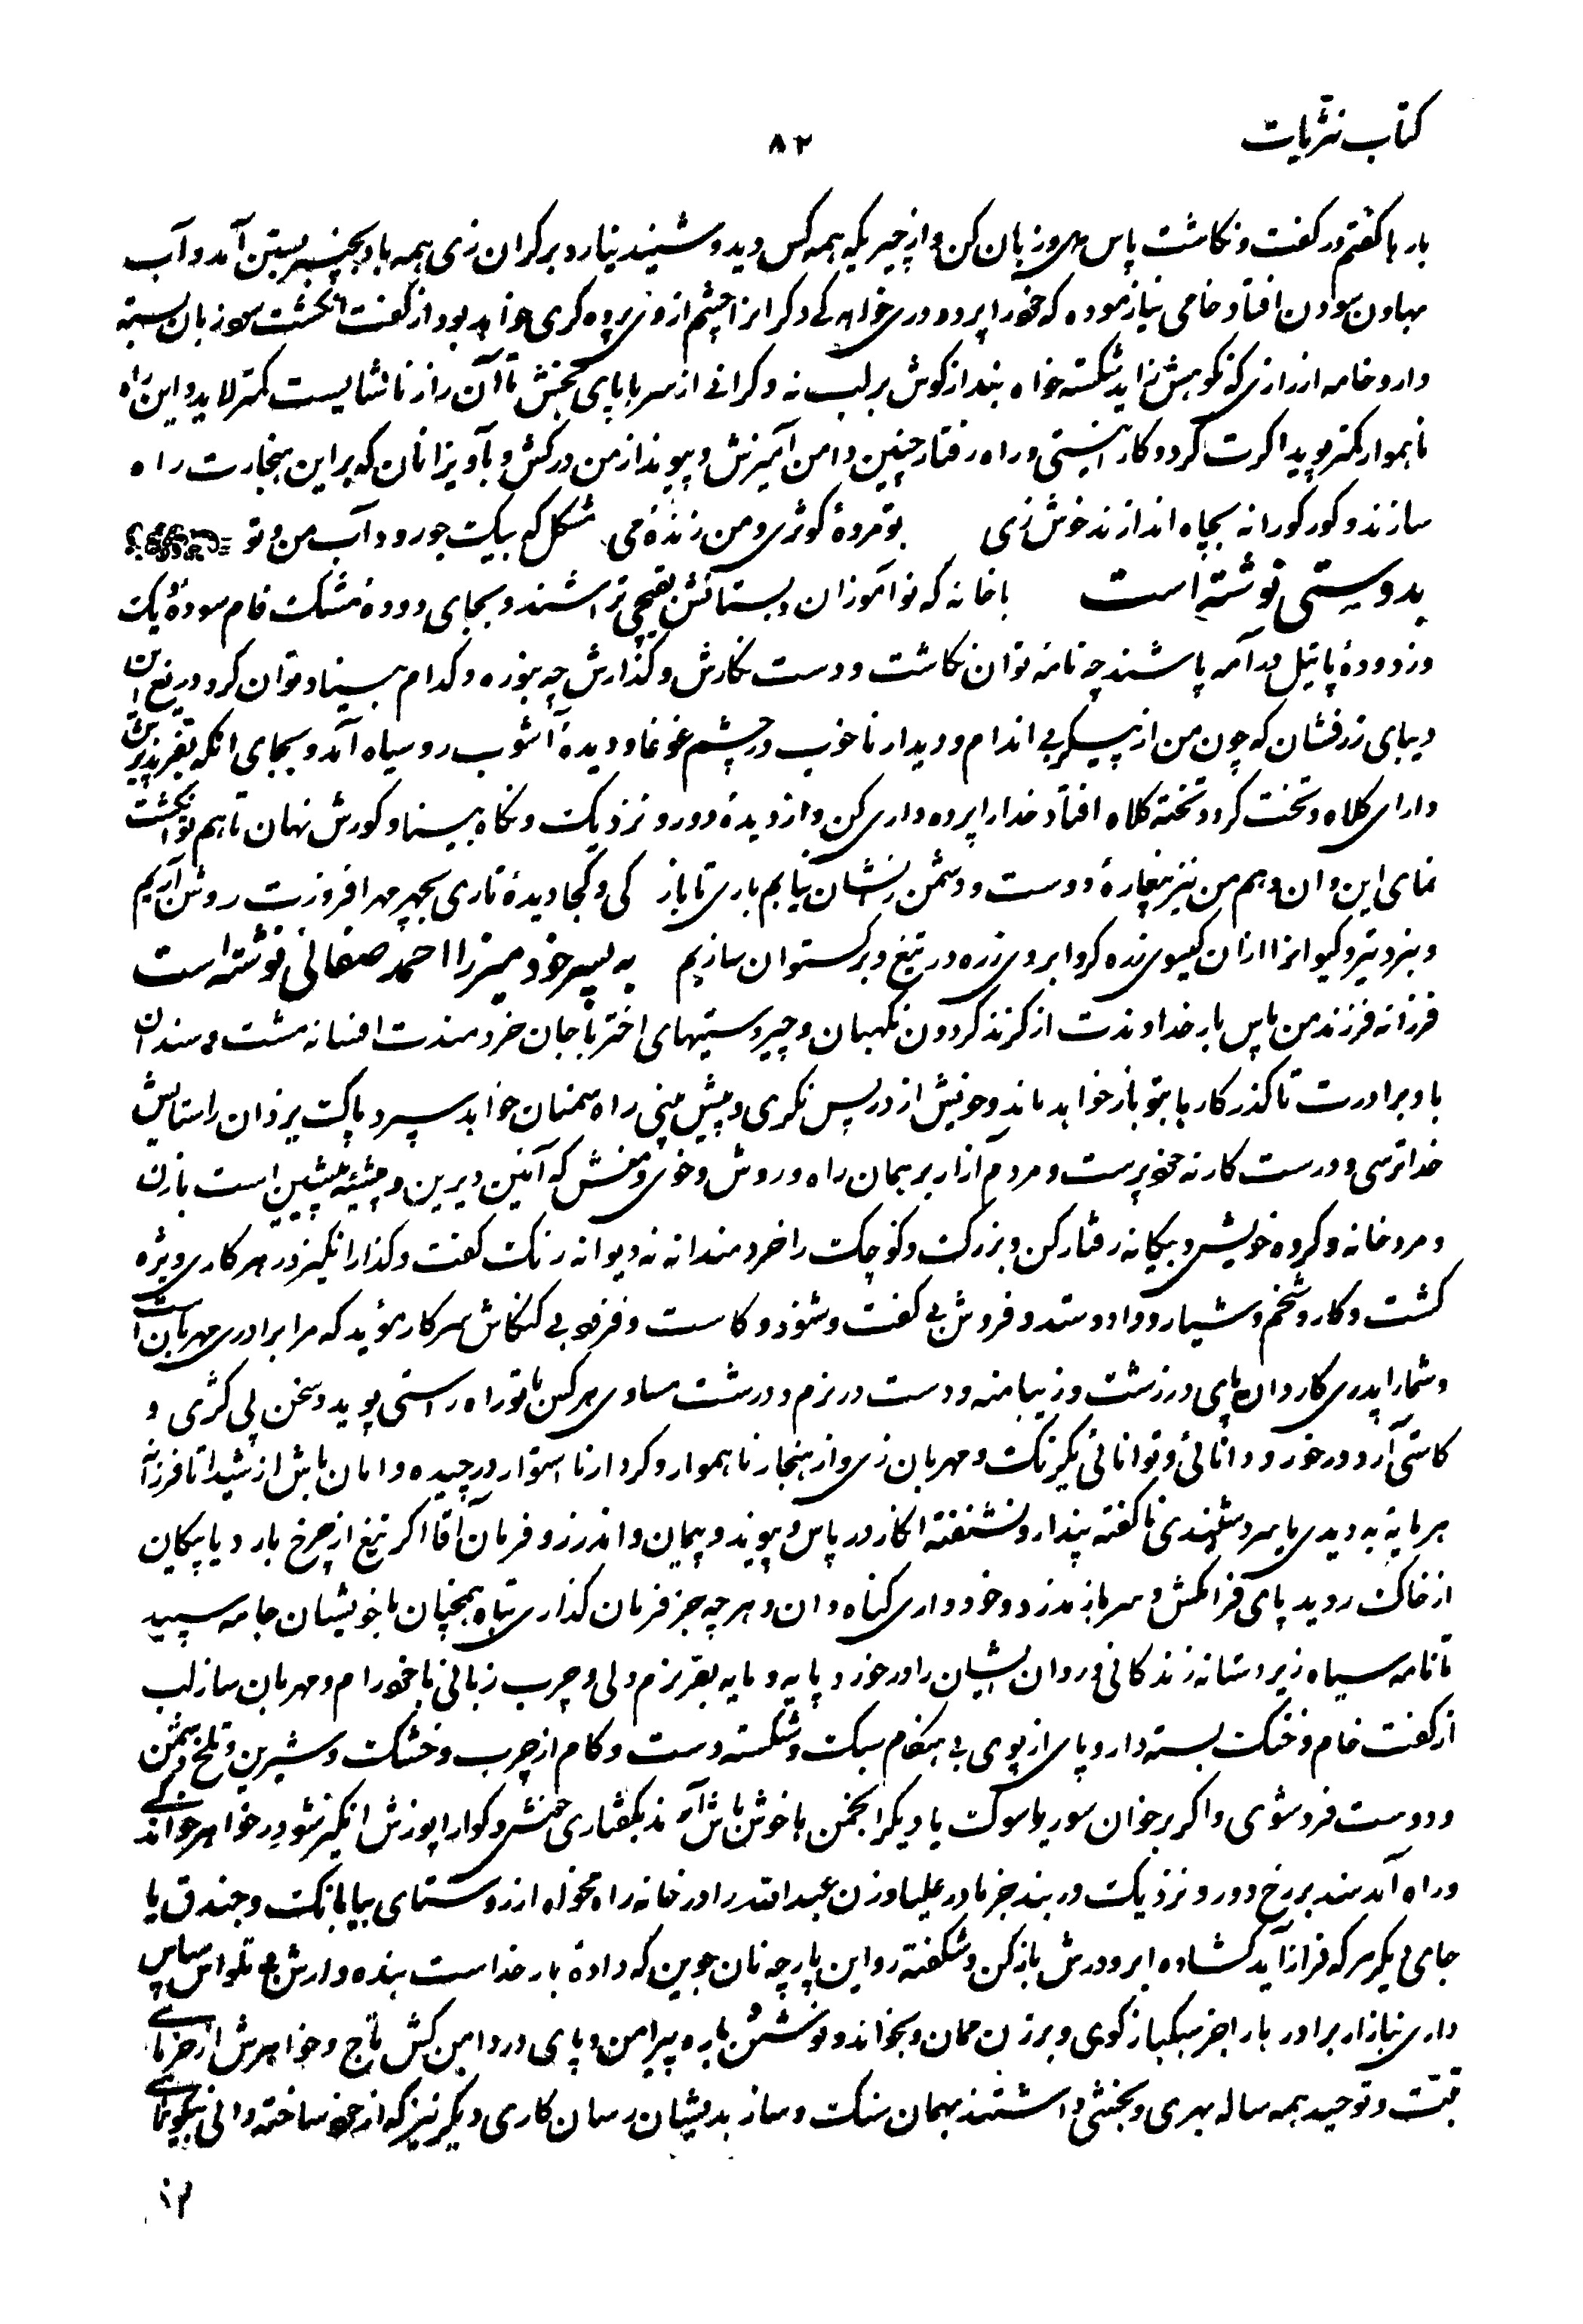 کتاب نثریات
۸۲
بارها گفتم در گفت و نگاشت پاس روز بان کن و از چیزیکه همه کس دید و شنید نیارد بر کران زی همه باد بچنبر بستن آمد و آب
بهاون سودن افتاد خامی نیازموده که خود را پرده دری خواهد کی دگرانرا چشم از وی پرده گری خواهد بود از گفت انگشت سود زبان بسته
دار و خامه از رازی که نکوهش زاید شکسته خواه بند از گوش بر لب نه و گرانی از سر با پای بخش تا آن راز ناشایست کمتر لاید و این راه
ناهموار کمتر پوید اگرت کرد و کار اینستی و راه رفتار چنین دامن آمیزش و پیوند از من در کش و با آویز آنان که بر این هنجارت راه
سازند و کورکورانه بچاه اندازند خوش زی بو مردهٔ کوثری و من زندهٔ می مشکل که بیک جو رود آب من و تو
بدوستی نوشته است با خانه که نوآموزان دبستانش بقیچی تراشند و بجای دودهٔ مشک فام سودهٔ یک
و زدودهٔ پاتیل در آمه پاشند چه نامه توان نگاشت و دست نگارش و گذارش چه بنوره و کدام بنیاد توان کرد دریغ این
دیبای زرفشان که چون من از پیکر بی اندام و دیدار ناخوب در چشم غوغا و دیدهٔ آشوب روسیاه آمد و بجای انکه بفر پذیرش
دارای کلاه و تخت گردد تخته کلاه افتاد خدا را پرده داری کن و از دیدهٔ دور و نزدیک و نگاه بینا و کورش نهان تا هم تو انگشت
نمای این و ان و هم من نیز بیغارهٔ دوست و دشمن نشان نیایم باری تا باز کی و کجا دیدهٔ تاری بچهر مهرافروزت روشن آریم
و بنرد تیر و کیوانرا از ان گیسوی زره کرد ابروی زره در تیغ و برگستوان سازیم به پسر خود میرزا احمد صفائی نوشته است
فرزانه فرزند من پاس بار خداوندت از گزند گردون نگهبان و چیره‌ستیهای اختر با جان خردمندت افسانه مشت و سندان
باد برادرت تا گذر کار با بتو باز خواهد ماند و خویش از در پس نگری و پیش بینی راه سمنان خواهد سپرد پاک یزدان را ستایش
خداترسی و درست کار نه خودپرست و مردم آزار بر همان راه و روش و خوی و منش که آئین دیرین و پیشهٔ پیشین است با زن
و مرد خانه و گروه خویش و بیگانه رفتار کن و بزرگ و کوچک را خردمندانه نه دیوانه رنگ گفت و گذار انگیز در هر کاری ویژه
کشت و کار و شخم و شیار و داد و ستد و فروش بی گفت و شنود و کاست و فزود بی کنکاش سرکار موید که مرا برادری مهربان است
و شما را پدری کاردان پای در زشت و زیبا منه و دست در نرم و درشت مساوی هر کس با تو راه راستی پوید و سخن بی کژی و
کاستی آرد در خورد دانائی و توانائی یکرنگ و مهربان زی و از هنجار ناهموار و کردار نا استوار در چیده دامان باش از شیدا تا فرزانه
هر مایه به دیدی یا سردی شنیدی ناگفته پندار و نشنفته انگار در پاس و پیوند و پیمان و اندرز و فرمان آقا اگر تیغ از چرخ بارد یا پیکان
از خاک روید پای فرا مکش و سر باز مدزد و خودداری گناه دان و هر چه جز فرمان گذاری تباه همچنان با خویشان جامه سپید
تا نامه سیاه زیردستانه زندگانی و روان ایشان را در خورد پایه و مایه بفر نرم دلی و چرب زبانی با خود رام و مهربان ساز لب
از گفت خام و خنک بسته دار و پای از پوی بی هنگام سبک و شکسته دست و کام از چرب و خشک و شیرین و تلخ دشمن
و دوست فروشوی و اگر بر خوان سور یا سوک یا دیگر انجمن ها خوش باش آمد بگفتاری خوش و گوارا پوزش انگیز شو در خواهر خواندگی
و راه آمد شد بر رخ دور و نزدیک در بند جز مادر علیا و زن عبدالله را در خانه راه مخواه از روستای بیابانک و جندق یا
جای دیگر هر که فراز آید گشاده ابرو درش باز کن و شکفته رو این پارچه نان جوین که دادهٔ بار خداست بنده وارش تلواس سپاس
داری نیاز آر برادر بار اجز بسکباز کوی و برزن ممان و بخواند و نوشتن باره پیرامن و پای در دامن کش تاج و خواهرش از خرمای
قبت و توحید همه ساله بهری و بخشی داشتند بهمان سنگ و ساز بدیشان رسان کاری دیگر نیز که از خود ساخته دانی بنیکوئی‌ای